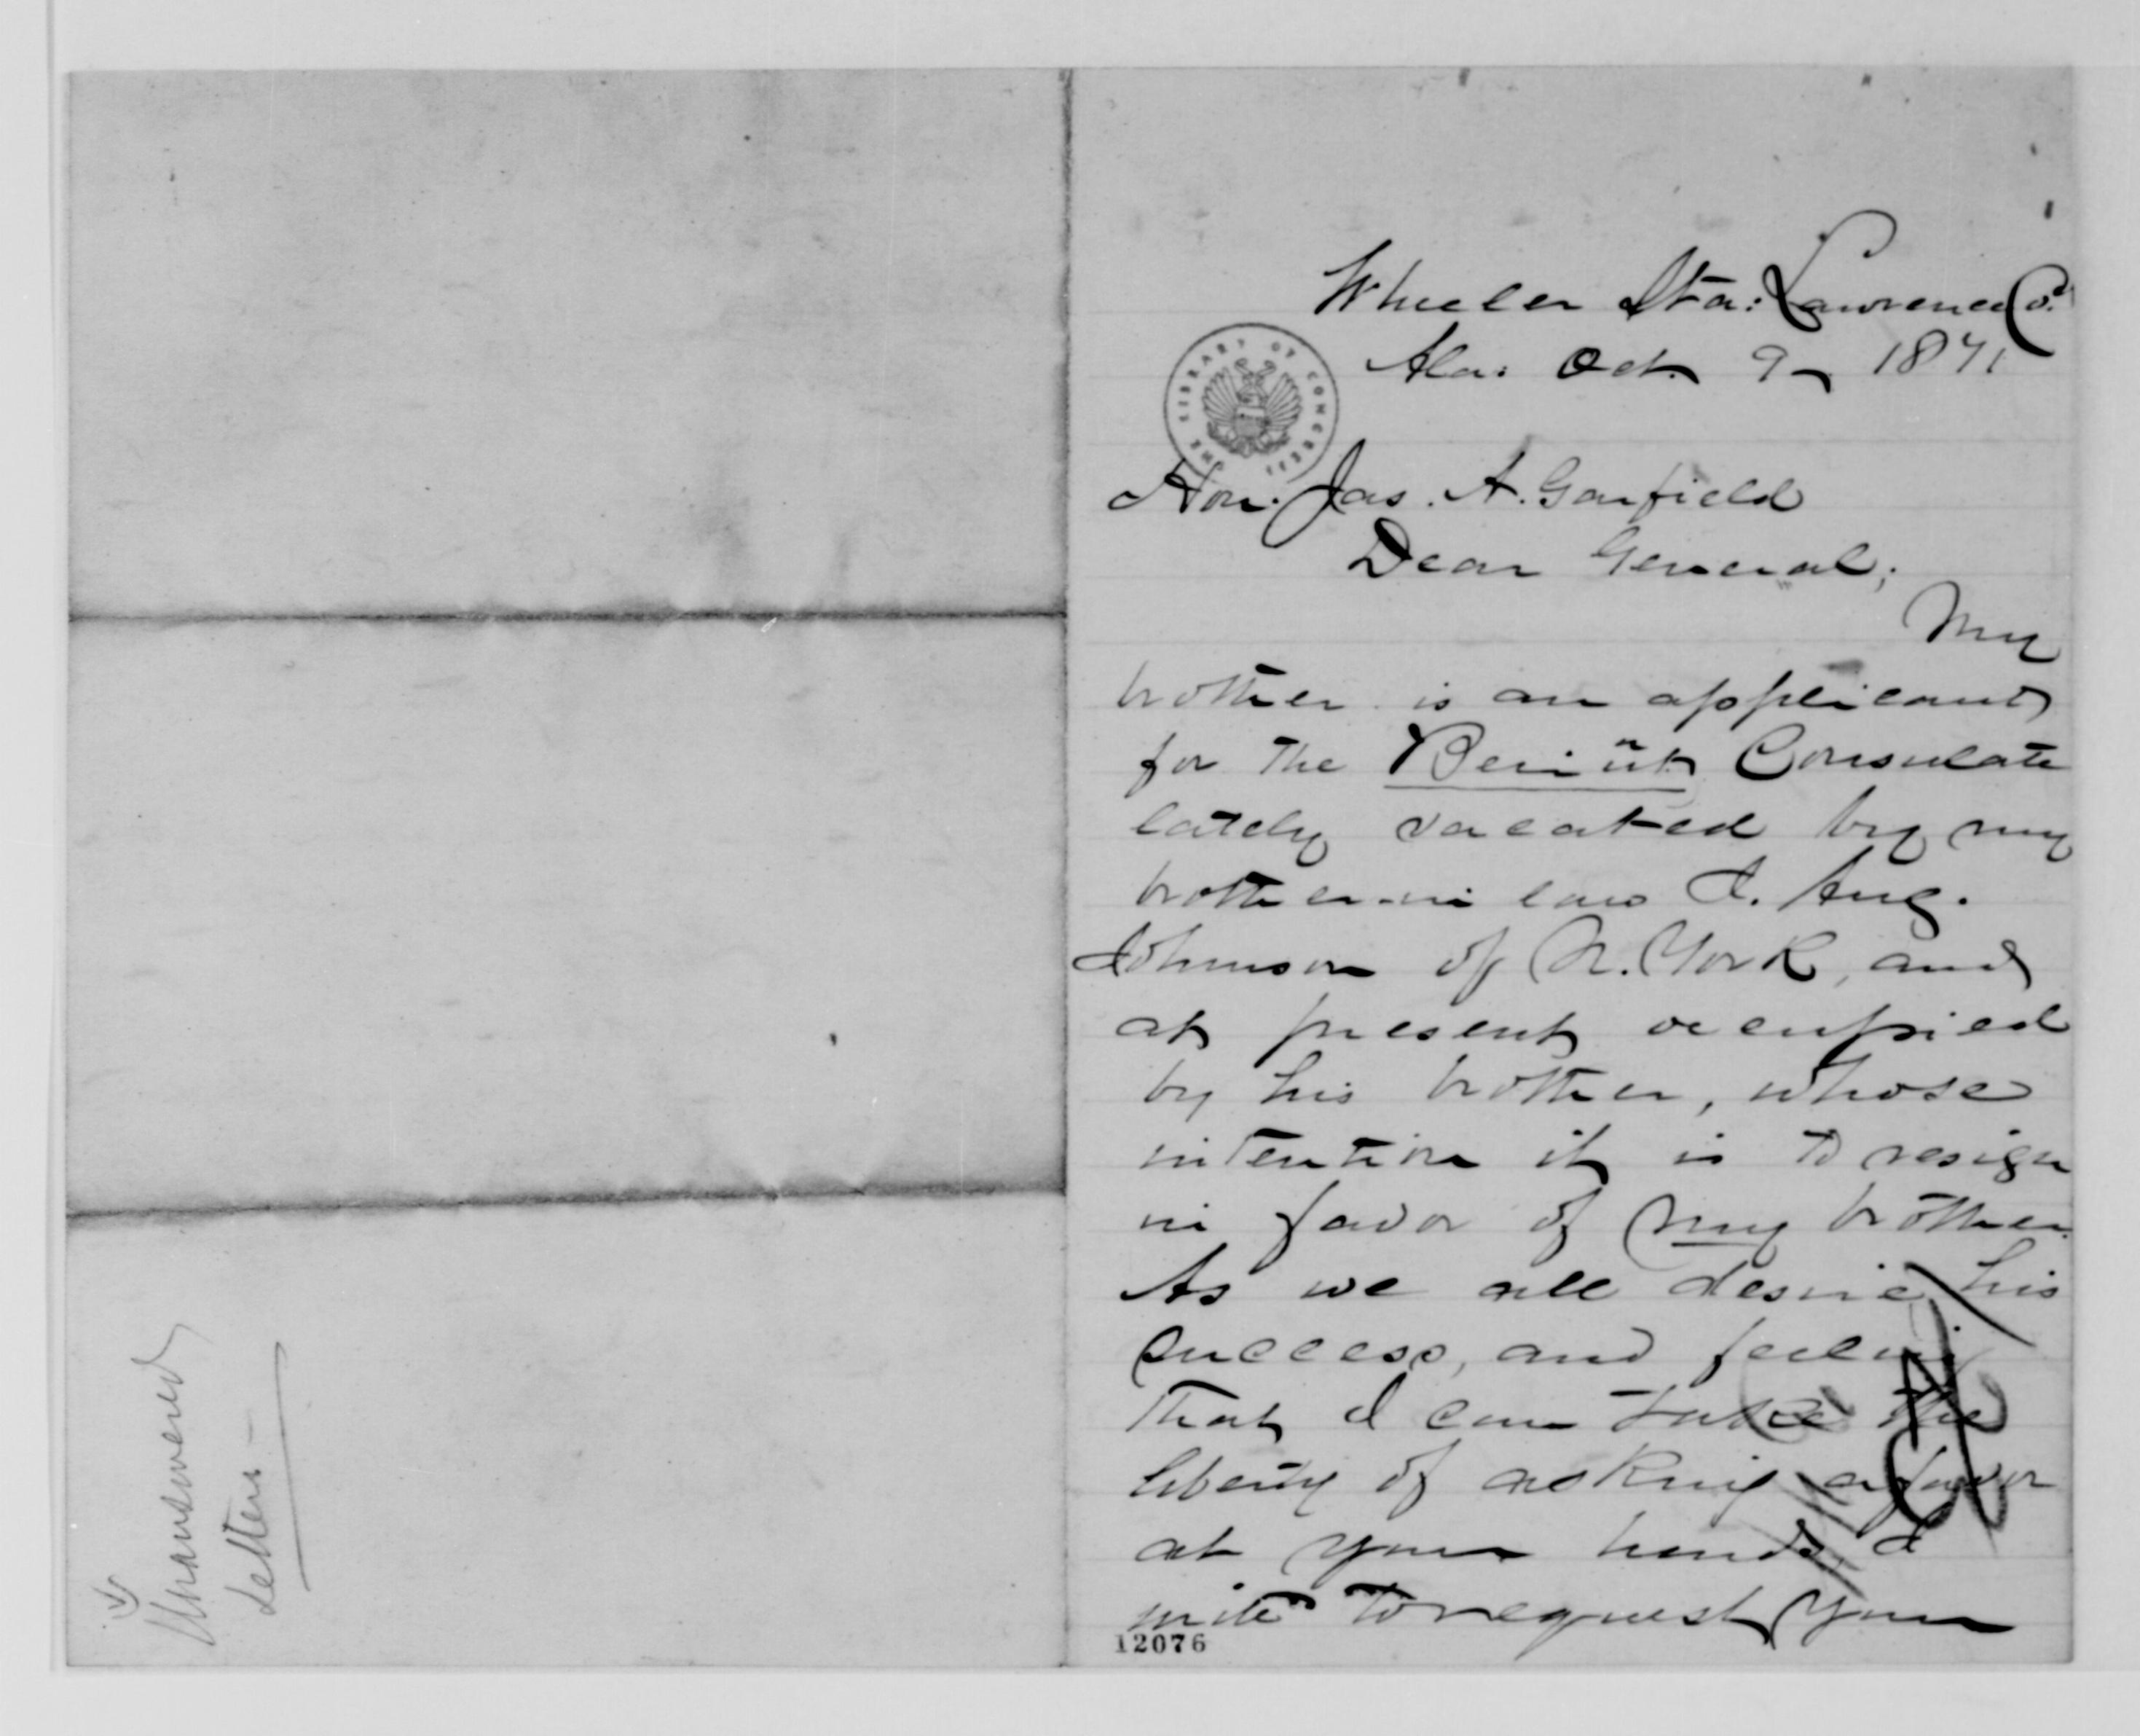 Unanswered
Letters
Wheeler Sta: Lawrence Co.
Ala: Oct. 9, 1871
THE LIBRARY OF CONGRESS
Hon. Jas. A. Garfield
Dear General;
My
brother is an applicant
for the Beirût Consulate
lately vacated by my
brother-in law J. Aug.
Johnson of N. York, and
at present occupied
by his brother, whose
intention it is to resign
in favor of my brother.
As we all desire his
success, and feeling
that I can take the
liberty of asking a favor
at your hands, I
write to request your
12076